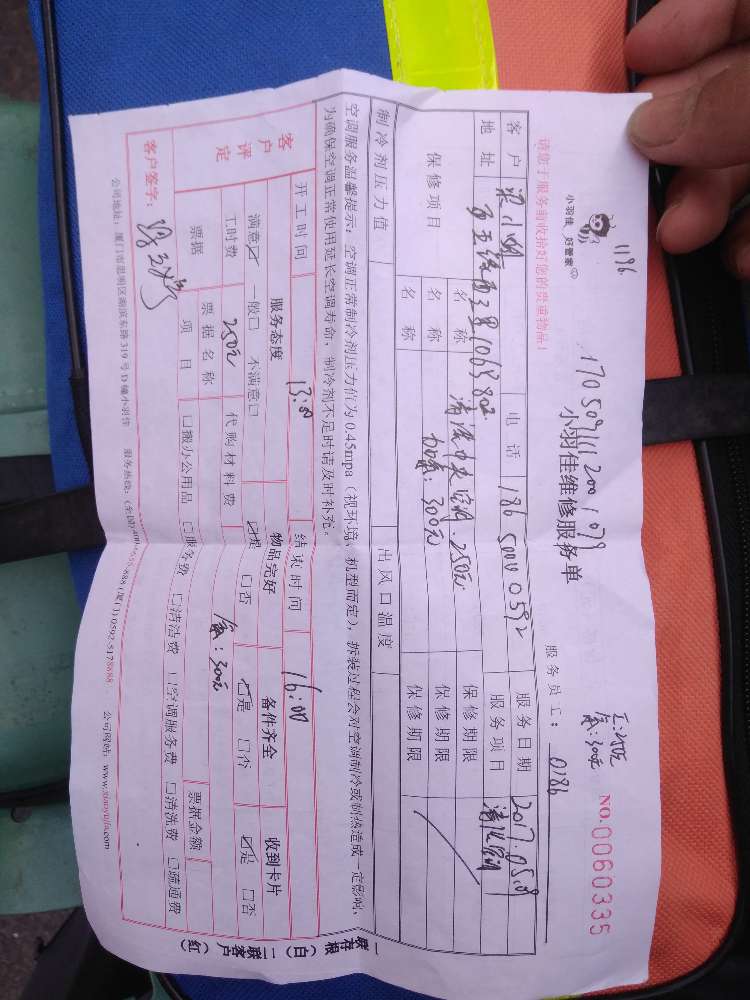 1186
小羽佳 好管家
170509111200 1079
小羽佳维修服务单
工:250元
氟:300元
NO.0060335
请您于服务前收拾好您的贵重物品!
服务员工: 0186
客户 梁小姐 电话 186 5000 0592 服务日期 2017.05.09
地址 服务项目
保修项目 名称 清洗中央空调.250元 保修期限
名称 加氟:300元 保修期限
名称 保修期限
制冷剂压力值 出风口温度
空调服务温馨提示:空调正常制冷剂压力值为0.45mpa(视环境、机型而定),拆装过程会对空调制冷或制热造成一定影响,
为确保空调正常使用延长空调寿命,制冷剂不足时请及时补充。
开工时间 13:00 结束时间 16:00
客户评定
服务态度 物品完好 备件齐全 收到卡片
满意☑ 一般□ 不满意□ ☑是 □否 ☑是 □否 ☑是 □否
工时费 250元 代购材料费 氟:300元
票据 票据名称 票据金额
项目 □搬办公用品 □服务费 □清洁费 □空调服务费 □清洗费 □疏通费
客户签字:
公司地址:厦门市思明区湖滨东路319号D幢小羽佳 服务热线: 公司网站:www.xiaoyujia.com
一联存根(白) 二联客户(红)